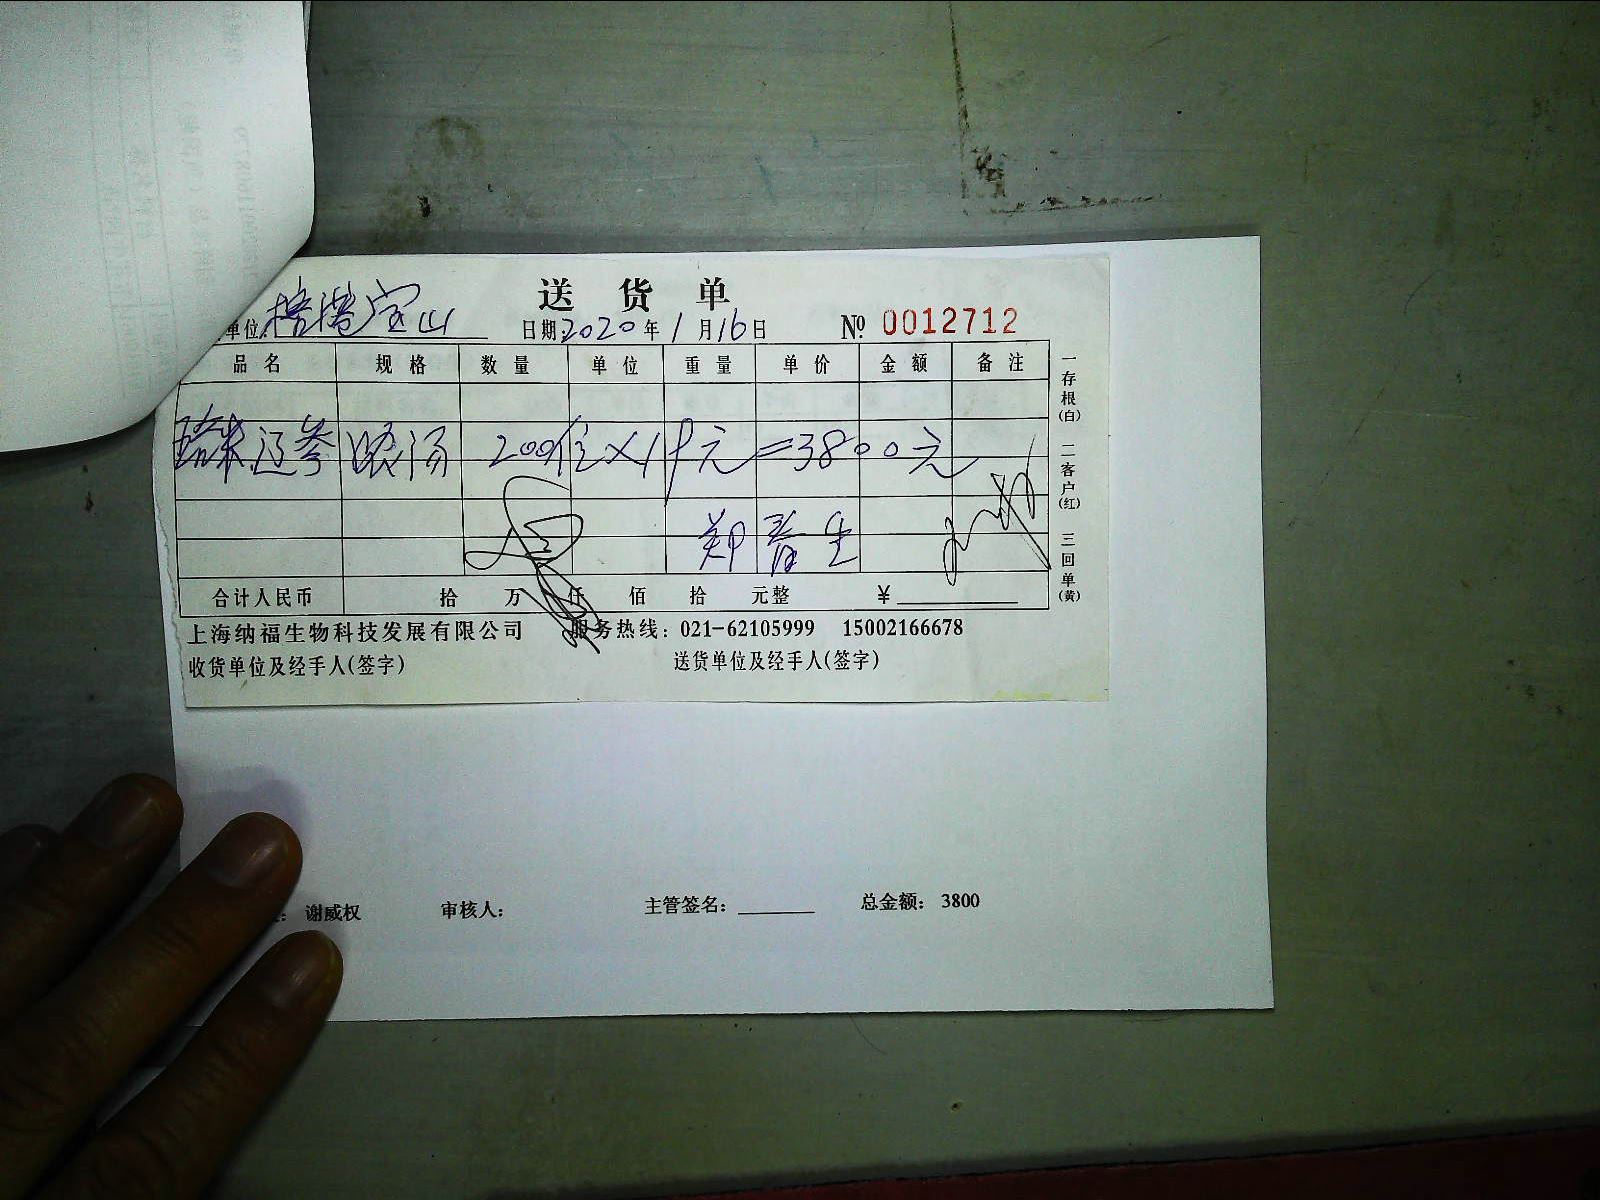 送货单
单位: 宝山 日期: 2020年1月16日 № 0012712
品名 规格 数量 单位 重量 单价 金额 备注
辽参 200位×19元=3800元
郑春生
合计人民币 拾 万 仟 佰 拾 元整 ¥
一存根(白) 二客户(红) 三回单(黄)
上海纳福生物科技发展有限公司 服务热线: 021-62105999 15002166678
收货单位及经手人(签字) 送货单位及经手人(签字)
谢威权 审核人: 主管签名: 总金额: 3800